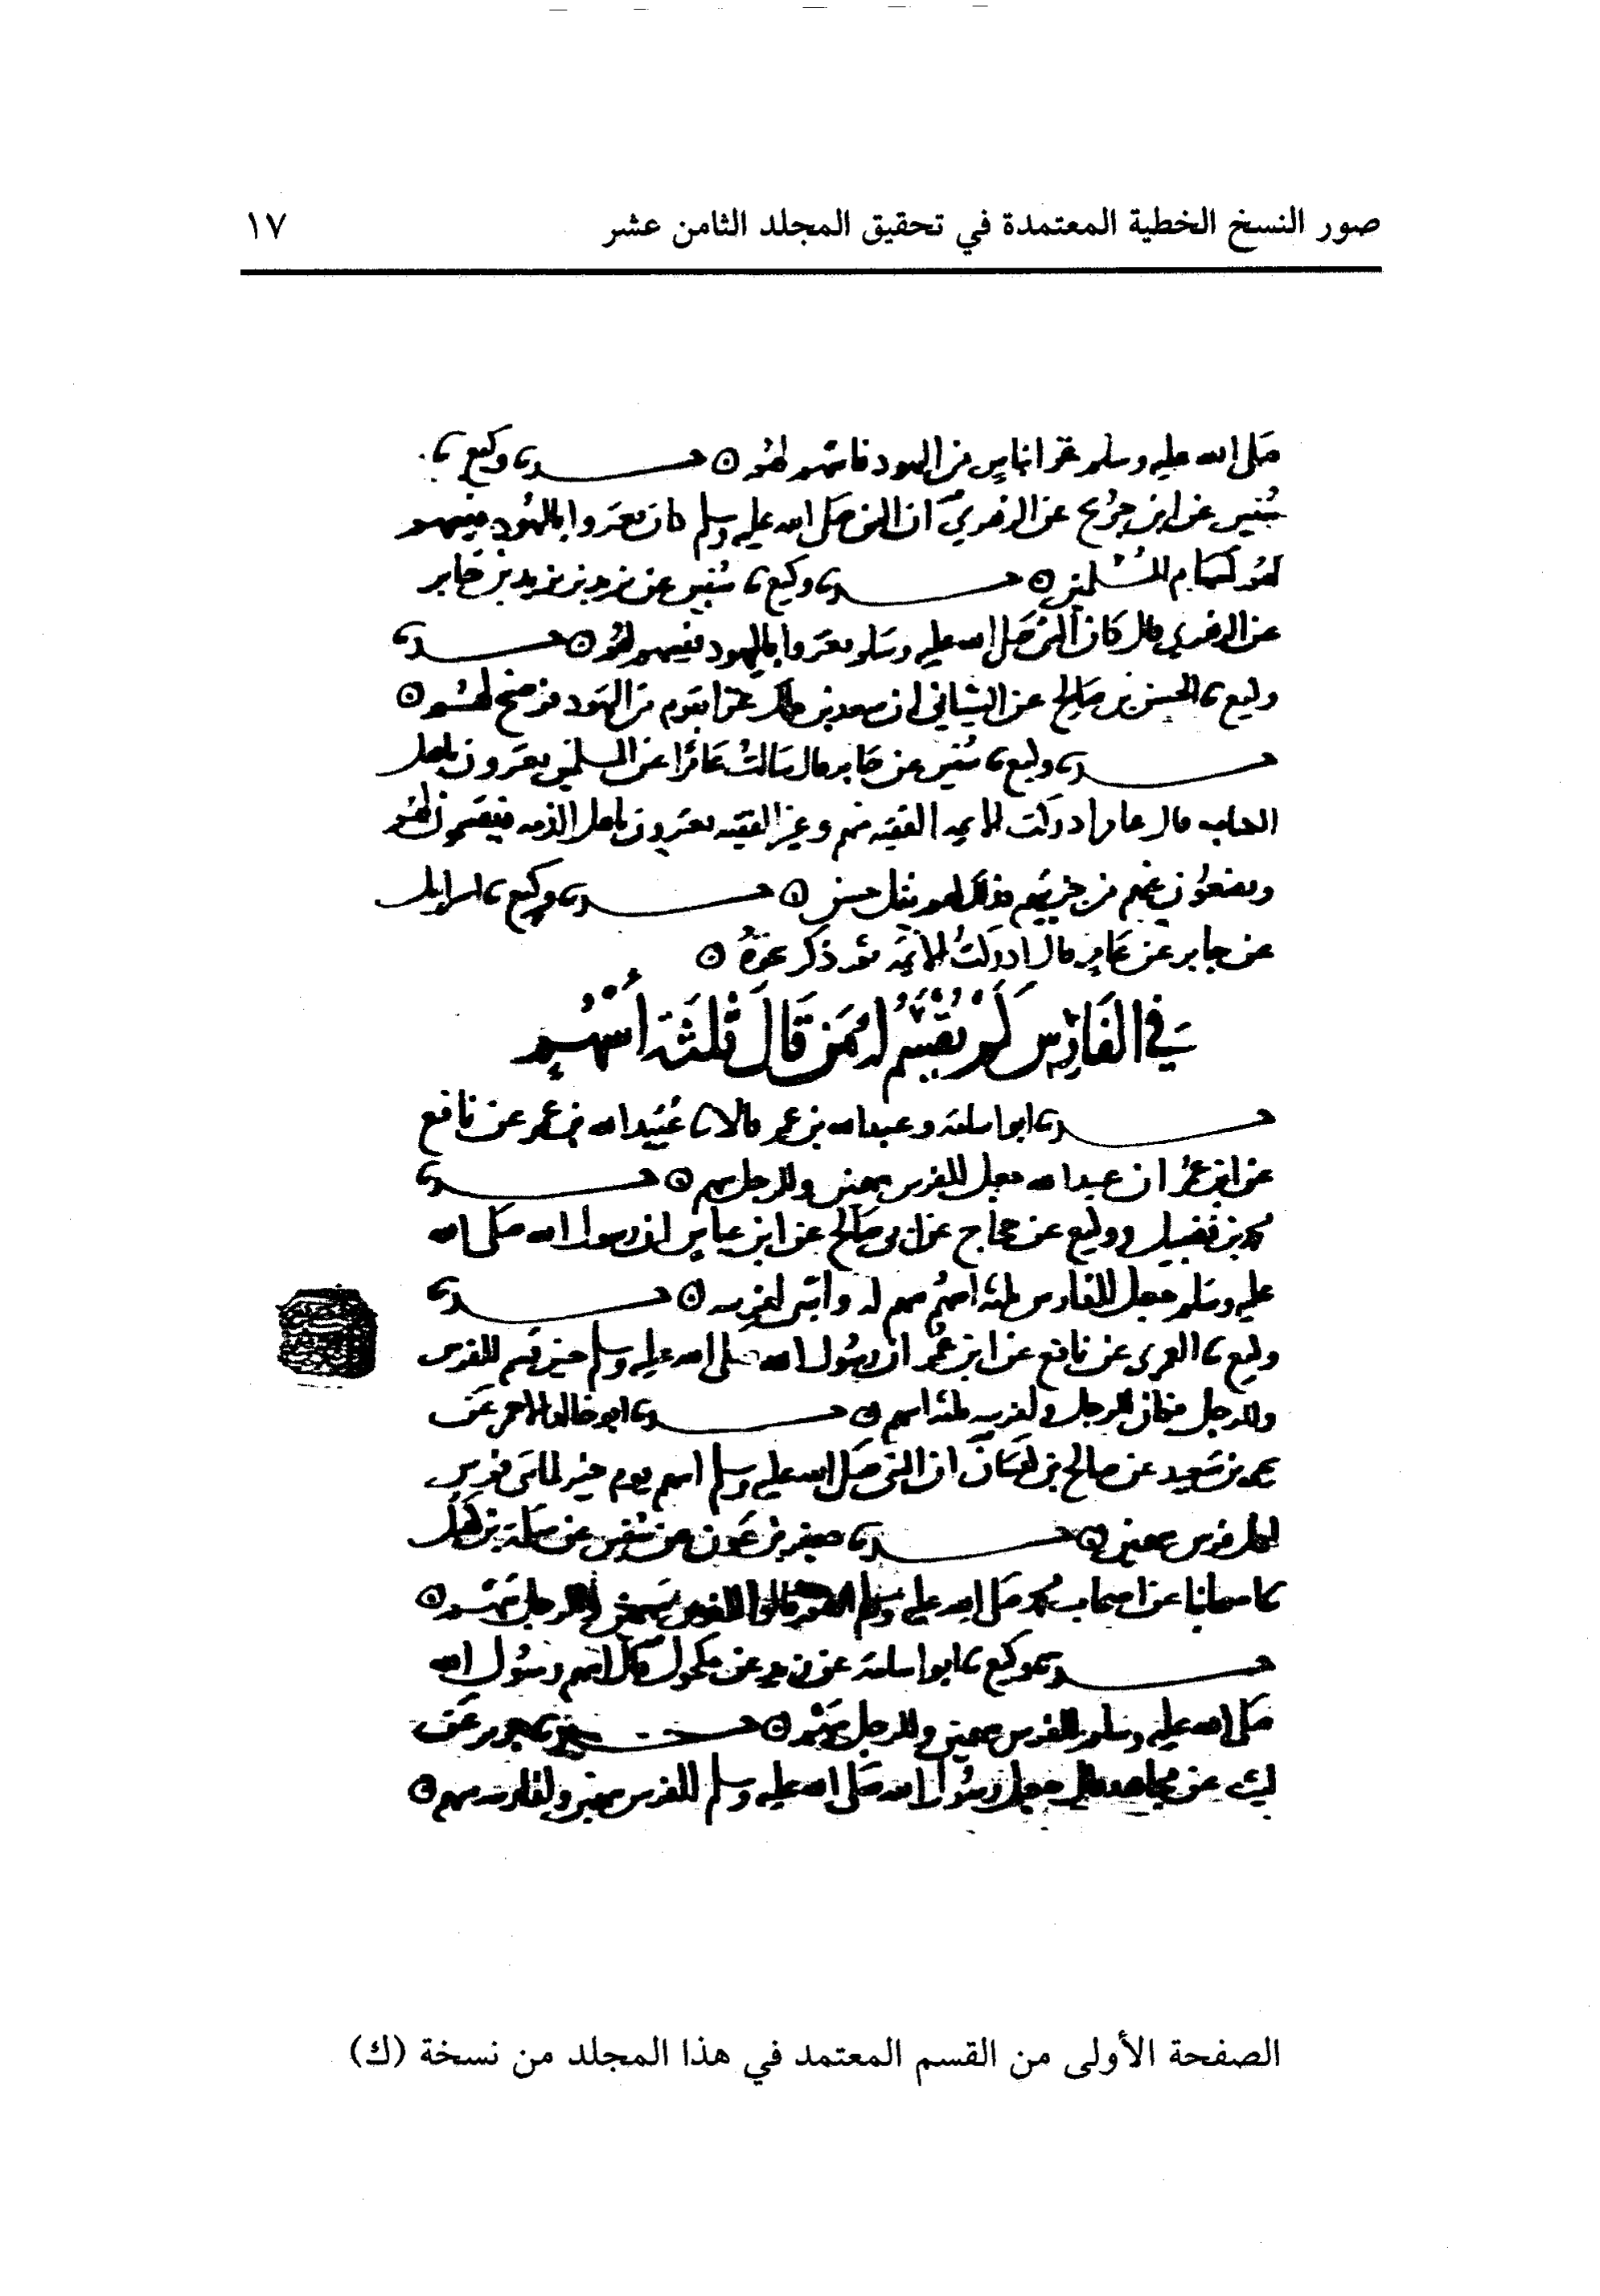 صور النسخ الخطية المعتمدة في تحقيق المجلد الثامن عشر ١٧
صلى الله عليه وسلم غزا بناس من اليهود فاسهم لهم ۞ حدثنا وكيع نا
سفين عن ابن جريج عن الزهري ان النبي صلى الله عليه وسلم كان يغزوا باليهود فيسهم
لهم كسهام المسلمين ۞ حدثنا وكيع نا سفين عن يزيد بن يزيد بن جابر
عن الزهري قال كان النبي صلى الله عليه وسلم يغزوا باليهود فيسهم لهم ۞ حدثنا
وكيع نا الحسن بن صالح عن الشيباني ان سعد بن مالك غزا بقوم من اليهود فرضخ لهم ۞
حدثنا وكيع نا سفين عن جابر قال سالت عامرا عن المسلمين يغزون باهل
الكتاب قال عامر ادركت الائمه الفقيه منهم وغير الفقيه يغزون باهل الذمه فيقسمون لهم
ويضعون عنهم من جزيتهم فذلك لهم نفل حسن ۞ حدثنا وكيع نا اسرايل
عن جابر عن عامر قال ادركت الائمه ثم ذكر نحوه ۞
في الفارس كم يقسم له من قال ثلثة اسهم
حدثنا ابو اسامة وعبد الله بن نمير قالا نا عبيد الله بن عمر عن نافع
عن ابن عمر ان جعل للفرس سهمين وللرجل سهم ۞ حدثنا
محمد بن فضيل ووكيع عن حجاج عن ابي صالح عن ابن عباس ان رسول الله صلى الله
عليه وسلم جعل للفارس ثلثة اسهم سهم له واثنين لفرسه ۞ حدثنا
وكيع نا العمري عن نافع عن ابن عمر ان رسول الله صلى الله عليه وسلم حين قسم للفرس
وللرجل فكان للرجل ولفرسه ثلثة اسهم ۞ حدثنا ابو خالد الاحمر عن
يحيى بن سعيد عن صالح بن كيسان ان النبي صلى الله عليه وسلم اسهم يوم خيبر لمائتي فرس
لكل فرس سهمين ۞ حدثنا جعفر بن عون عن سفين عن سلمة بن كهيل
نا اصحابنا عن اصحاب محمد صلى الله عليه وسلم انهم قالوا للفرس سهمين وللرجل سهم ۞
حدثنا وكيع نا ابو اسامة عن عن مكحول قال اسهم رسول الله
صلى الله عليه وسلم للفرس سهمين وللرجل سهم ۞ حدثنا جرير عن
ليث عن مجاهد قال جعل رسول الله صلى الله عليه وسلم للفرس سهمين ولفارسه سهم ۞
الصفحة الأولى من القسم المعتمد في هذا المجلد من نسخة (ك)